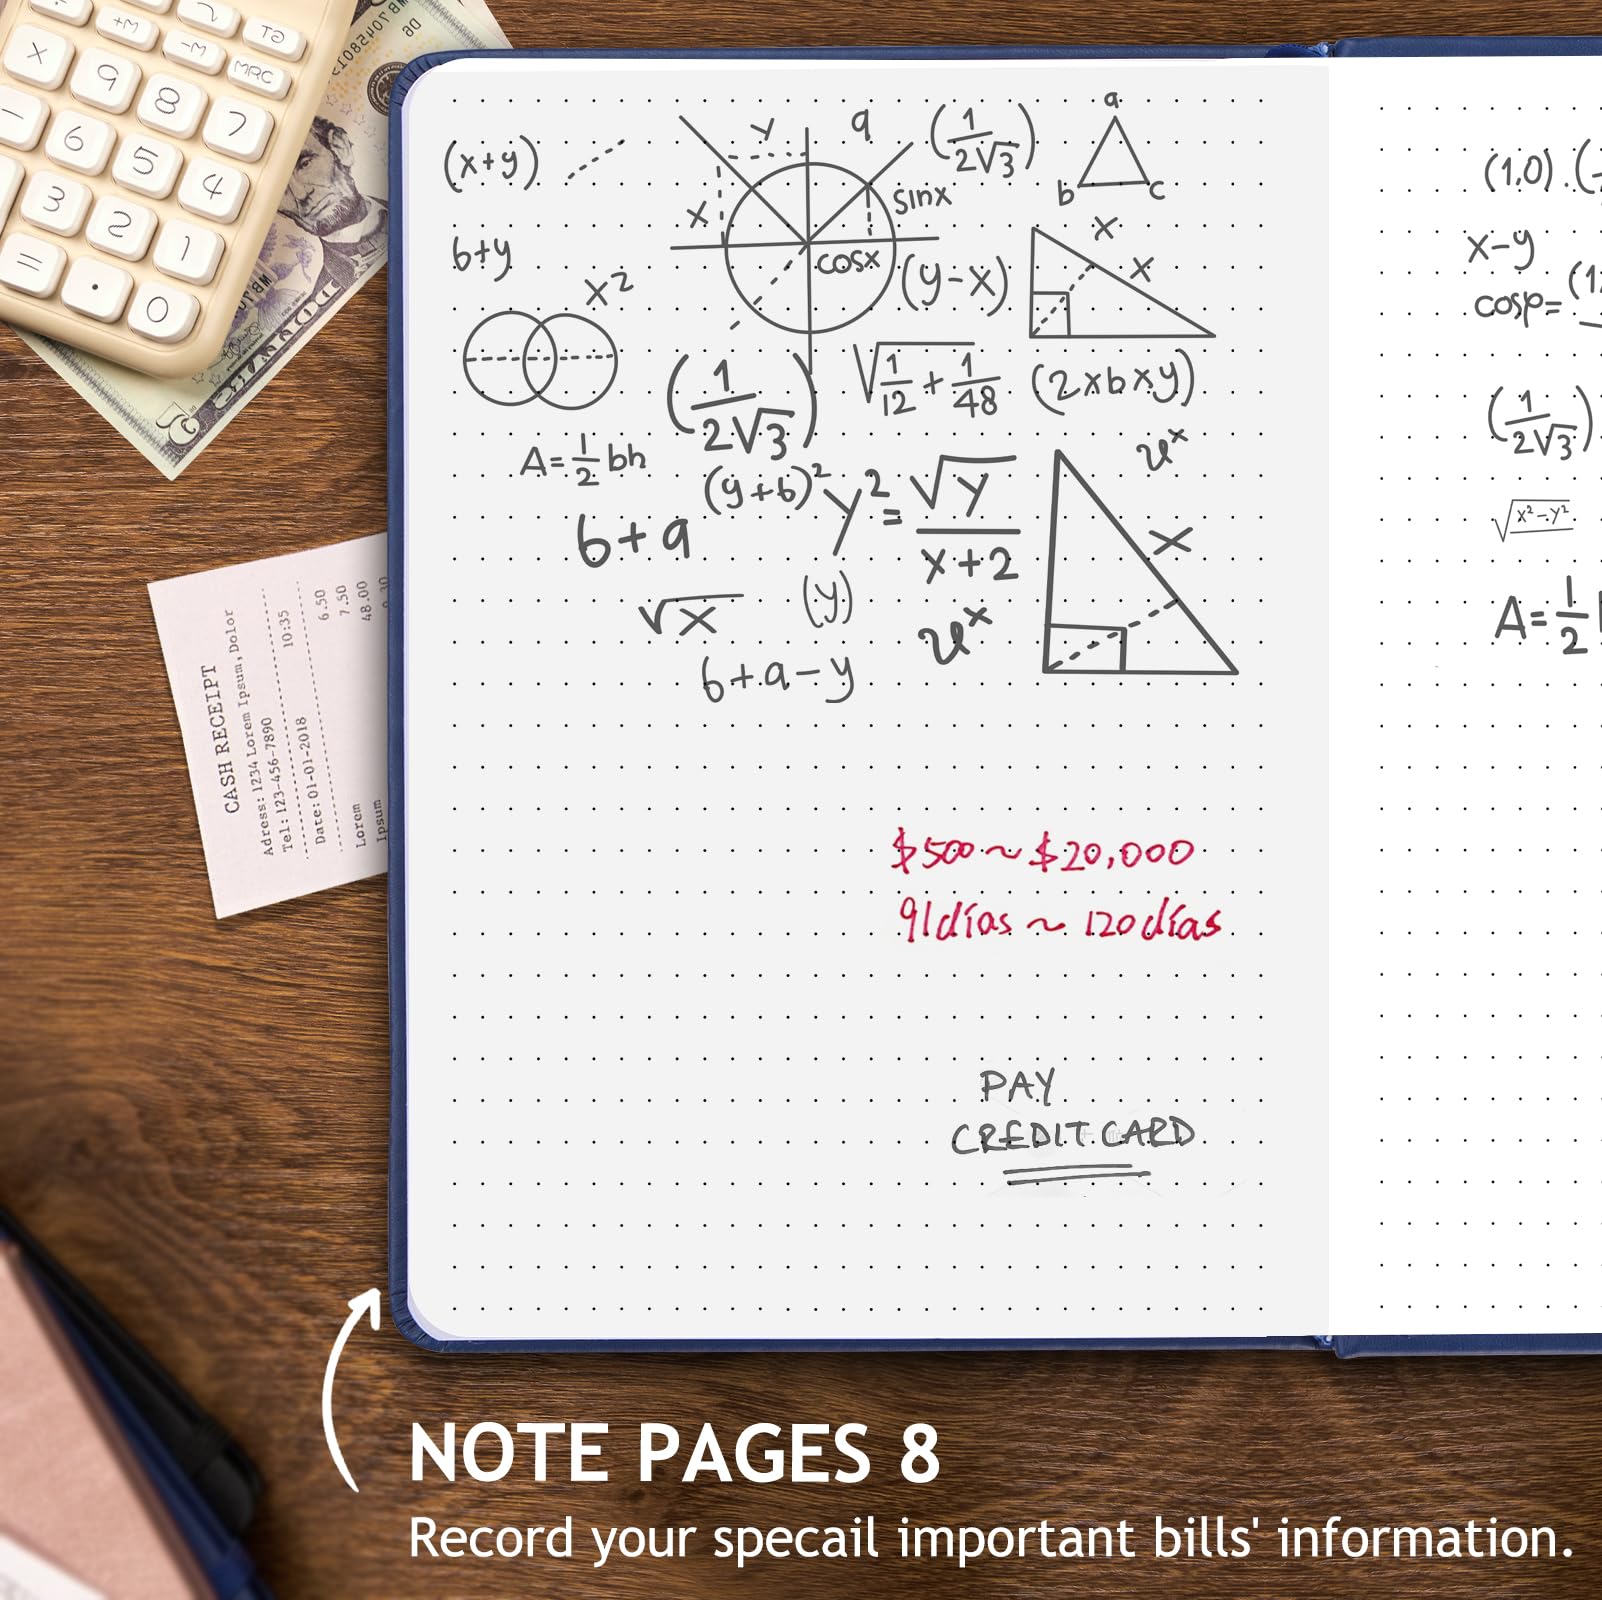 +M
2
TG
X
9
-M
MRC
8
7
-
6
5
4
3
2
1
=
.
0
CASH RECEIPT
Adress: 1234 Lorem Ipsum, Dolor
Tel: 123-456-7890
Date: 01-01-2018 10:35
Lorem 6.50
Ipsum 7.50
48.00
(x+y)
y
q
(1/2√3)
a
b
c
x
sinx
cosx
6+y
x²
(y-x)
x
x
(1/2√3)
√1/12 + 1/48
(2xbxy)
A=1/2 bh
(y+6)²
6+a
y²= √y/x+2
x
√x
(y)
6+a-y
$500~$20,000
91días ~ 120días
PAY
CREDIT CARD
(1,0).
x-y
cosp=
(1/2√3)
√x²-y²
A=1/2
NOTE PAGES 8
Record your specail important bills' information.